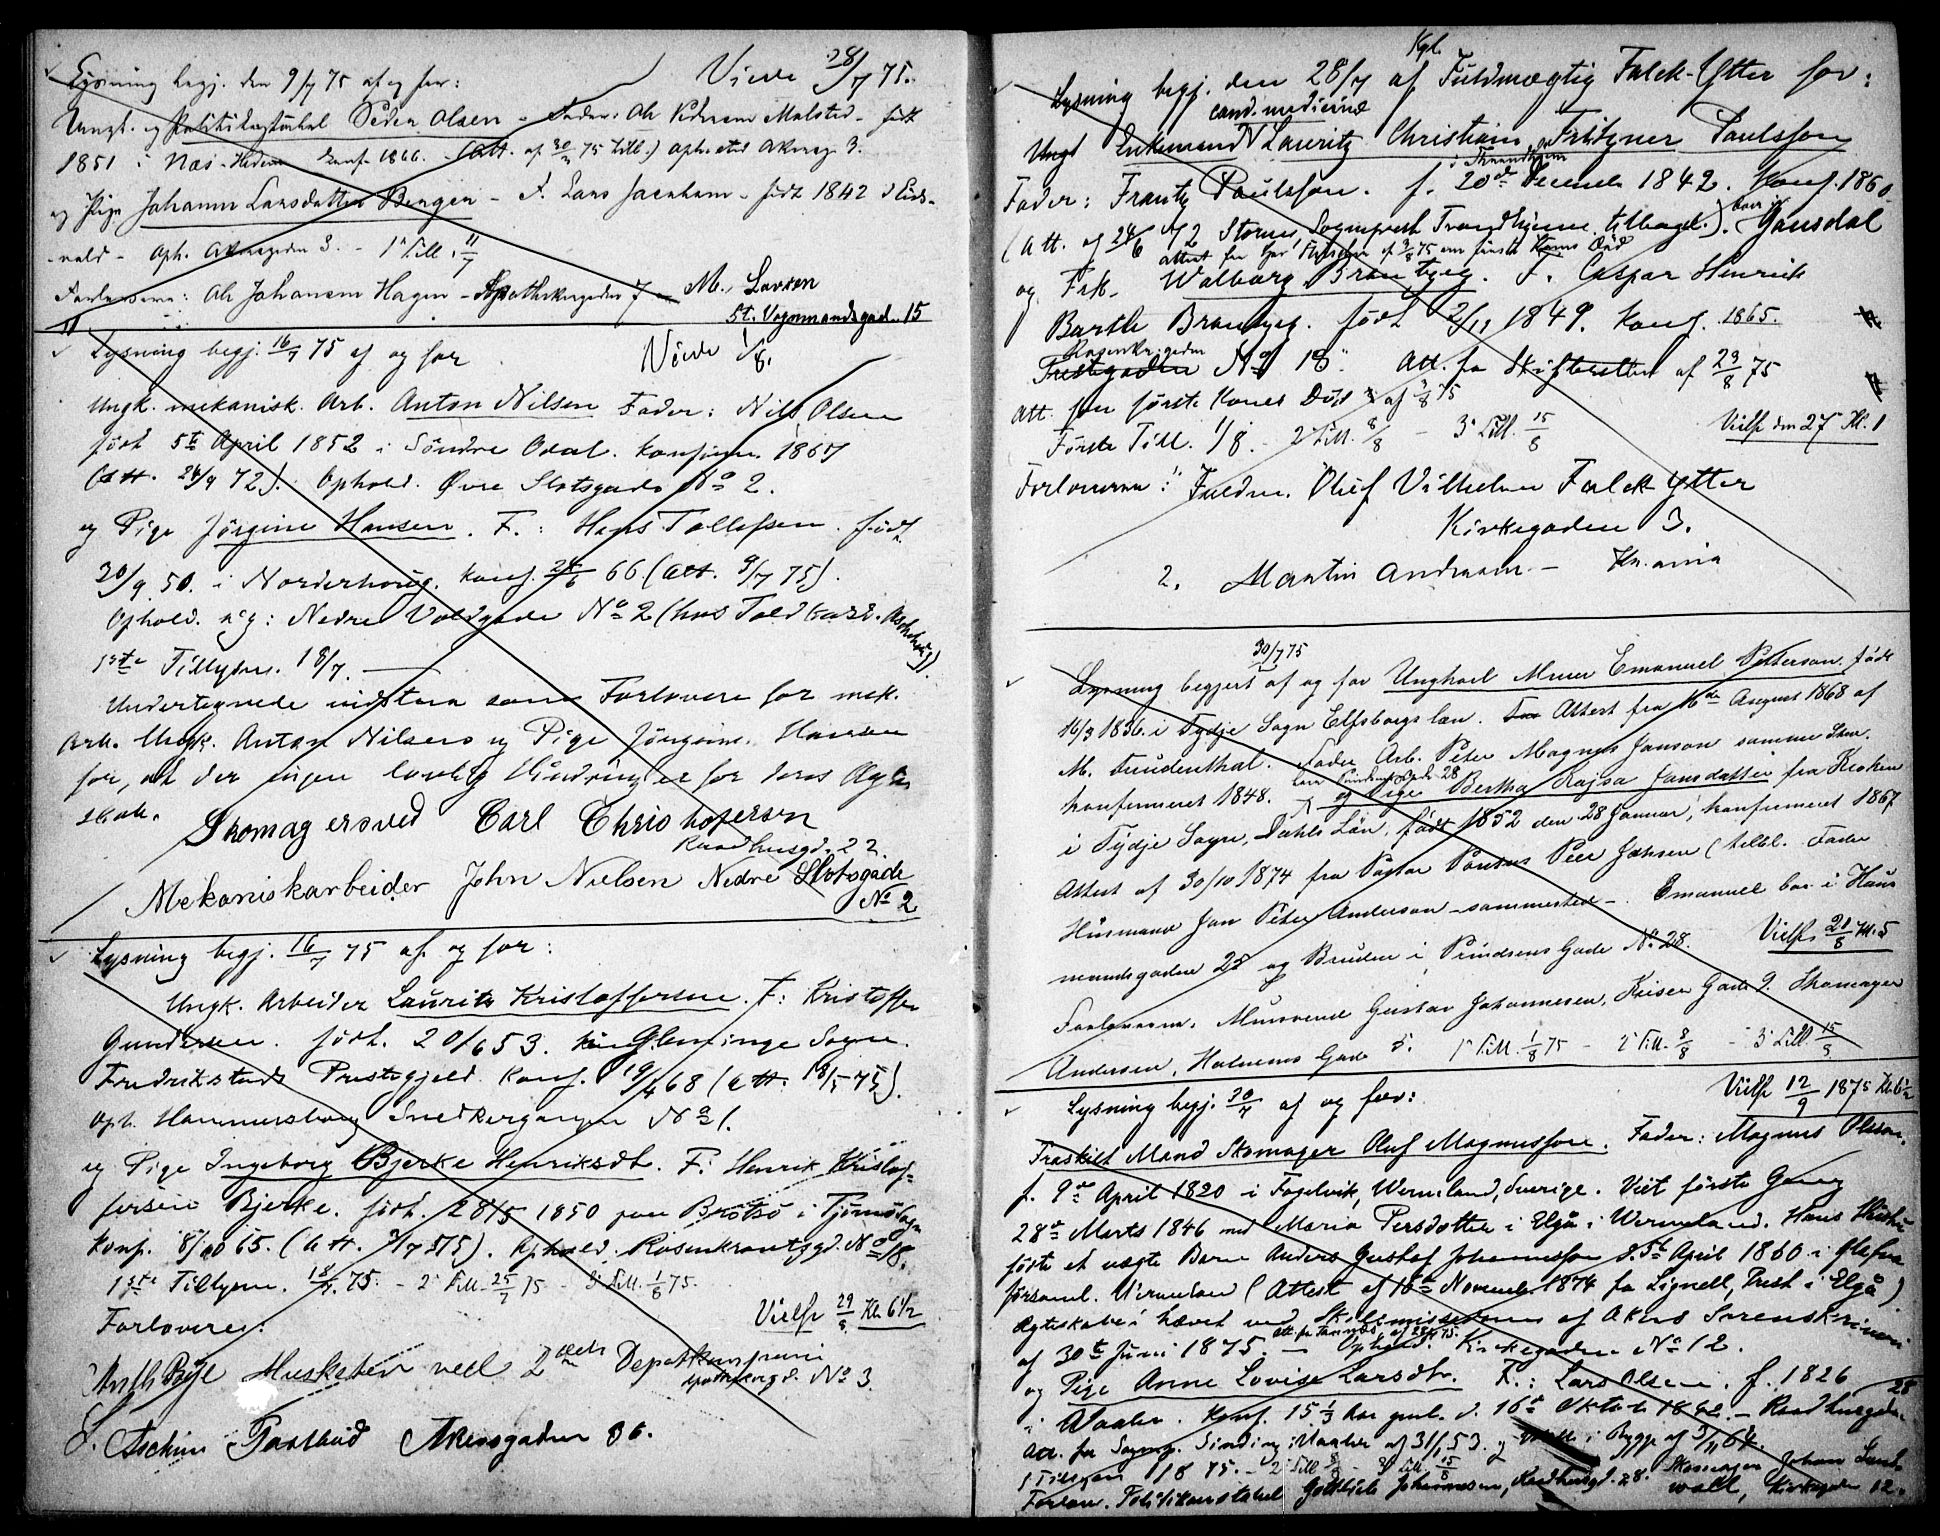 Viede 28/7 75.
Lysning begj. den 9/7 75 af og for:
Ungk. og Politikonstabel Peder Olsen - Fader: Ole Pedersen Malsted - født
1851 i Næs - Hedem. konf. 1866. - (Att. af 30/3 75 tilb.) Opholdsted Akersg. 3.
og Pige Johanne Larsdatter Bergen - F. Lars - født 1842 i Eids-
vold - Oph. Akersgaden 3. - 1ste Till. 11/7
Forloverne: Ole Johansen Hagen - Apothekergaden 7
M. Larsen
St. Vognmandsgad. 15
Lysning begj. 16/7 75 af og for
Viede 1/8.
Ungk. mekanisk. Arb. Anton Nilsen Fader: Nils Olsen
født 5te April 1852 i Söndre Odal. konfirm. 1867
(Att. 24/9 72). Ophold. Øvre Slotsgade No 2.
og Pige Jörgine Hansen. F.: Hans Tollefsen. født
20/9 50. i Norderhoug. konf. 24/6 66 (att. 9/7 75).
Ophold. Nedre Voldgade No 2 (hos Toldkass.
1ste Tillysn. 18/7.
Undertegnede indstaa som Forlovere for mek.
Arb. Ungk. Anton Nilsen og Pige Jörgine Hansen
for, at der ingen lovlig Hindring er for deres Ægte
skab.
Skomagersved Carl Christophersen
Raadhusgd. 22
Mekaniskarbeider John Nielsen Nedre Slotsgade
No 2
Lysning begj. 16/7 75 af og for:
Ungk. Arbeider Laurits Kristoffersen. F: Kristoffer
Gundersen. født. 20/6 53. Glemminge Sogn.
Fredrikstads Prestegjeld. konf. 19/4 68 (att. 18/5 75).
Oph. Hammersborg Snedkergangen No 1.
og Pige Ingeborg Bjerke Henriksdt. F: Henrik Kristof-
fersen Bjerke. født. 28/5 1850 paa Brötsö i Tjömö Sogn
konf. 8/10 65. (Att. 3/7 75). Ophold. Rosenkrantzgd. No 18.
1ste Tillysn. 18/7. 75. - 2 Till. 25/7 75 - 3 Till. 1/8 75.
Vielse 29/8 Kl 6 1/2
Forlovere:
Musketer ved 2det Depotkompani
No 3.
Akersgaden 36.
Lysning begj. den 28/7 af Kgl. Fuldmægtig Falck-Ytter for:
cand. medicinæ
Ungk Lauritz Christian Fritzner Paulsson
i Trondhjem
Fader: Frantz Paulsson. f. 20de Decemb 1842. Konf. 1860
(Att. af 24/6 Sogneprest Trondhjem tilbagel.). bor i Gausdal
attest fra af 2/8 75 om første Kones Död
og Frk. Walborg Brambjeg. F. Caspar Hinrich
Barth Brambjeg. født 2/11 1849. Konf. 1865.
Rosenkr.gaden No 18. Att. fra Skifteretten af 23/8 75
Att. for første Kones Död af 2/8 75
Første Till. 1/8. - 2 Till. 8/8 - 3 Till. 15/8
Vielse den 27 Kl. 1
Forloverne: 1. Fuldm. Oluf Vilhelm Falck Ytter
Kirkegaden 3.
2. Martin Andersen - Kr.ania
30/7 75
Lysning begjert af og for Ungkarl Murer Emanuel Petterson. født
16/3 1836. i Tydje Sogn Elfsborgs læn. Attest fra 16de August 1868 af
M. Freudenthal. Fader Arb. Peter Magnus Janson samme Sted.
konfirmeret 1848. og Pige Bertha Kajsa Jansdatter fra
i Tydje Sogn, Dahls Län, født 1852 den 28 Januar, konfirmeret 1867
Attest af 30/10 1874 fra Pastor Pontus Peer Jahnsen (tilbl. Fader
Husmand Jan Peter Anderson - sammested -. Emanuel bor i Haus
mandsgaden 25 og Bruden i Prindsens Gade No 28.
Vielse 21/8 Kl. 5
Forloverne. Mursvend Gustav Johannesen, Keiser Gade 9. Skomager
Andersen, Holmens Gade 5. 1 Till. 1/8 75 - 2 Till. 8/8 - 3 Till. 15/8
Lysning begj. 30/7 af og for:
Vielse 12/9 1875 Kl. 6 1/2
Fraskilt Mand Skomager Oluf Magnusson. Fader: Magnus Olsson.
f. 9de April 1820 i Fogelvik, Wermland, Sverige. Viet første Gang
28de Marts 1846 med Maria Persdotter i Elgå i Wermeland. Hans Hustru
födte et uægte Barn Anders Gustaf Johannesson d. 5te April 1860 i
församl. Vermeland (Attest af 16de Novemb. 1874 fra Lignell, Prest i Elgå)
Ægteskabet hævet ved af Akers Sorenskriveri
af 30te Juni 1875. - Ophold. Kirkegaden No 12.
og Pige Anne Lovise Larsdtr. F.: Lars Olsen. f. 1826
i Vaaler. konf. 15 1/3 Aar gml. d. 16de Oktob 1842. - Raadhusgaden 28
Att. fra Sognep. Sinding i Vaaler af 31/1 53. og i Rygge af 3/11 64.
1 Tillysn 1/8 75. - 2 Till 8/8 - 3 Till. 15/8
Forlov. Politikonstabel Gottlieb Johannesen, Raadhusgd. 28. Skomager Johan Sund-
wall, Kirkegaden 12.